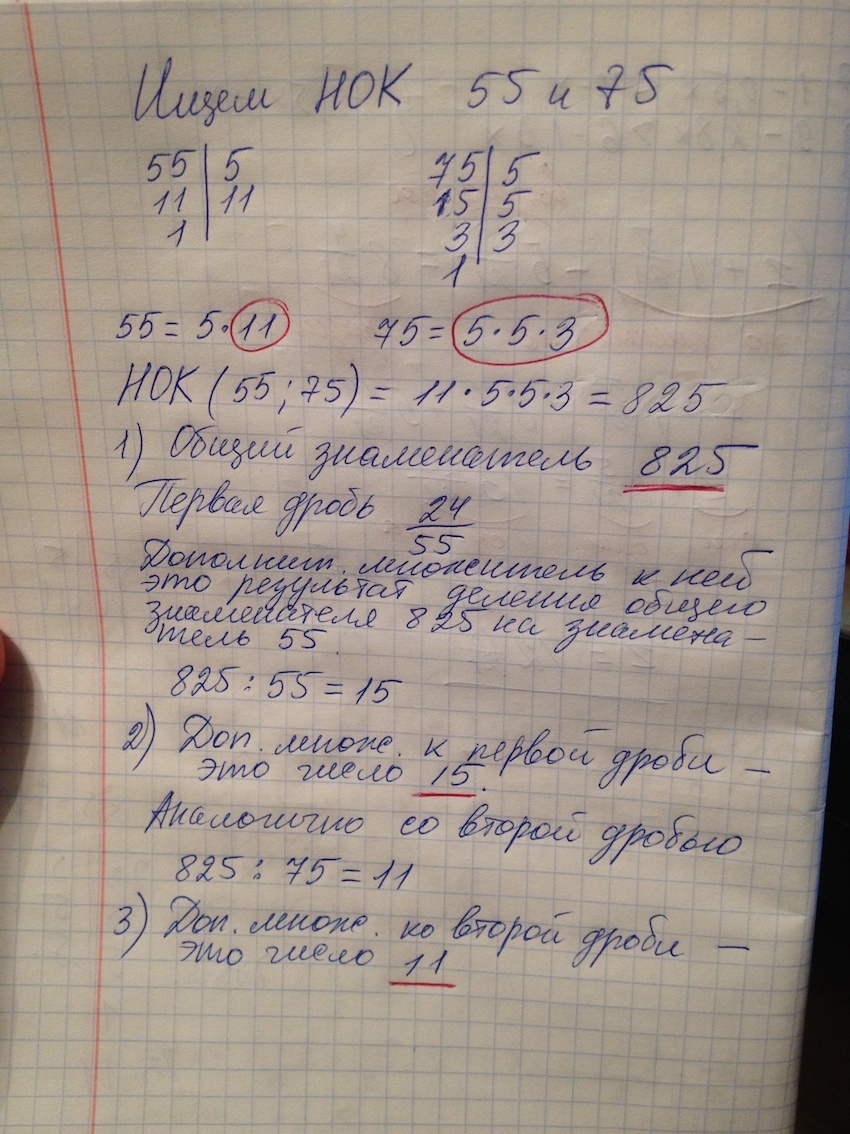 Ищем НОК 55 и 75
55 | 5   75 | 5
11 | 11   15 | 5
1 |   3 | 3
1
55 = 5·11   75 = 5·5·3
НОК (55; 75) = 11·5·5·3 = 825
1) Общий знаменатель 825
Первая дробь 24/55
Дополнит. множитель к ней
это результат деления общего
знаменателя 825 на знамена-
тель 55.
825 : 55 = 15
2) Доп. множ. к первой дроби –
это число 15.
Аналогично со второй дробью
825 : 75 = 11
3) Доп. множ. ко второй дроби –
это число 11